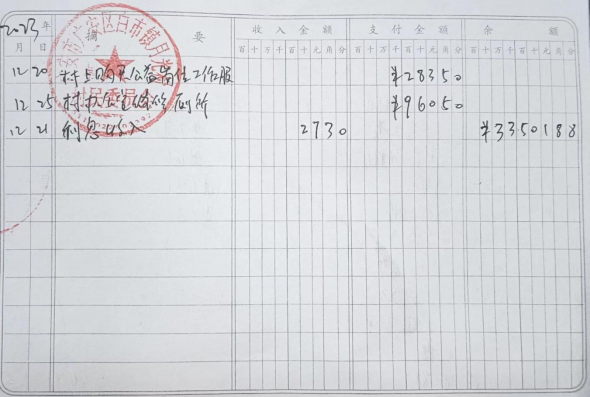 2023年 摘 要 收入金额 支付金额 余 额
月 日 百十万千百十元角分 百十万千百十元角分 百十万千百十元角分
12 20 村上购买公益岗位工作服 ¥28350
12 25 村 厕所 ¥96050
12 21 利息收入 2730 ¥3350188